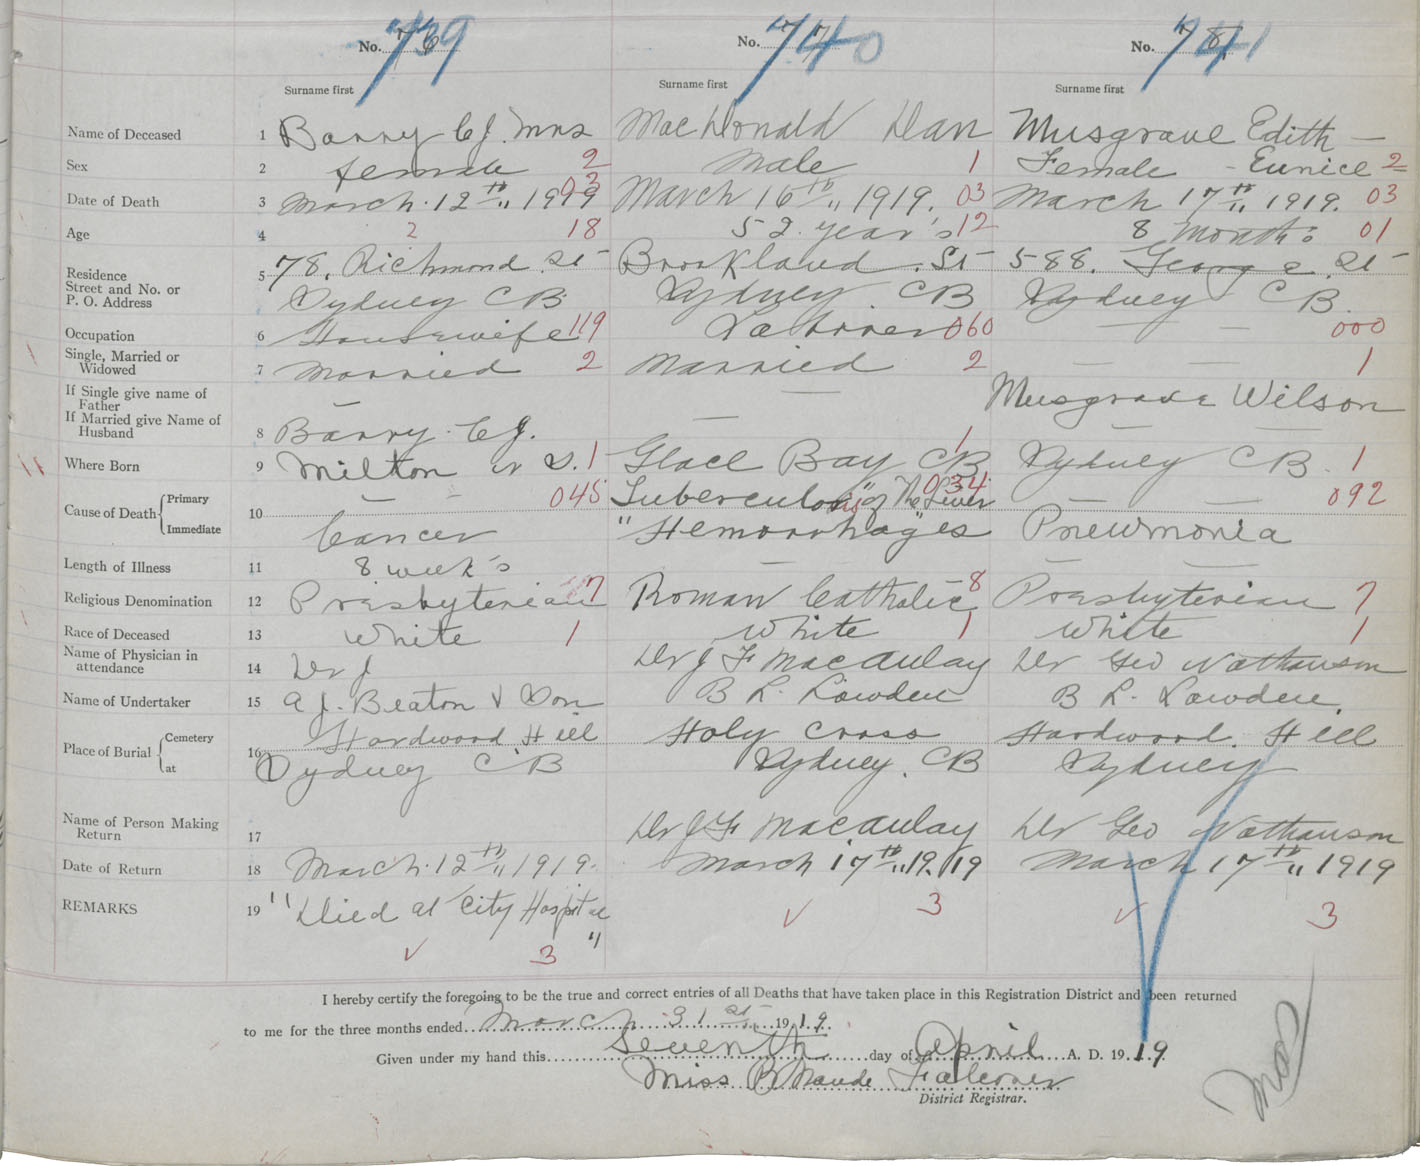 No. 76 739 No. 77 740 No. 78 741
Surname first Surname first Surname first
Name of Deceased 1 Barry C J. Mrs MacDonald Dan Musgrave Edith —
Sex 2 female 2 Male 1 Female - Eunice 2
Date of Death 3 March. 12th 1919 03 March 16th, 1919. 03 March 17th, 1919. 03
Age 4 2 18 52 year's 12 8 months 01
Residence
Street and No. or
P. O. Address 5 78. Richmond St Brookland. St 588. George. St
Sydney CB Sydney. CB Sydney CB.
Occupation 6 Housewife 119 Laborer 060 — — 000
Single, Married or
Widowed 7 Married 2 Married 2 — — 1
If Single give name of
Father — — — Musgrave Wilson
If Married give Name of
Husband 8 Barry. C J. — —
Where Born 9 Milton N S. 1 Glace Bay CB 1 Sydney CB. 1
Cause of Death Primary — — 045 Tuberculosis of The Liver 034 — — 092
Immediate 10 Cancer "Hemorrhages" Pneumonia
Length of Illness 11 8 week's — — —
Religious Denomination 12 Presbyterian 7 Roman Catholic 8 Presbyterian 7
Race of Deceased 13 White 1 White 1 White 1
Name of Physician in
attendance 14 Dr J Dr J F MacAulay Dr Geo Nathanson
Name of Undertaker 15 A J. Beaton & Son B L. Lowden B L. Lowden.
Place of Burial Cemetery Hardwood Hill Holy Cross Hardwood. Hill
at 16 Sydney CB Sydney. CB Sydney
Name of Person Making
Return 17 Dr J F MacAulay Dr Geo Nathanson
Date of Return 18 March. 12th, 1919. March 17th, 1919 March 17th, 1919
REMARKS 19 "Died at City Hospital" 3 3
3
I hereby certify the foregoing to be the true and correct entries of all Deaths that have taken place in this Registration District and been returned
to me for the three months ended March 31st 1919.
Given under my hand this Seventh day of April A. D. 1919.
Miss B Maude Falconer
District Registrar.